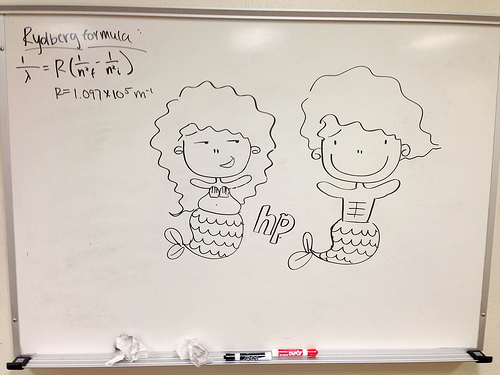 Rydberg formula :
1/λ = R(1/n²f - 1/n²i)
R=1.097×10⁵ m⁻¹
hp